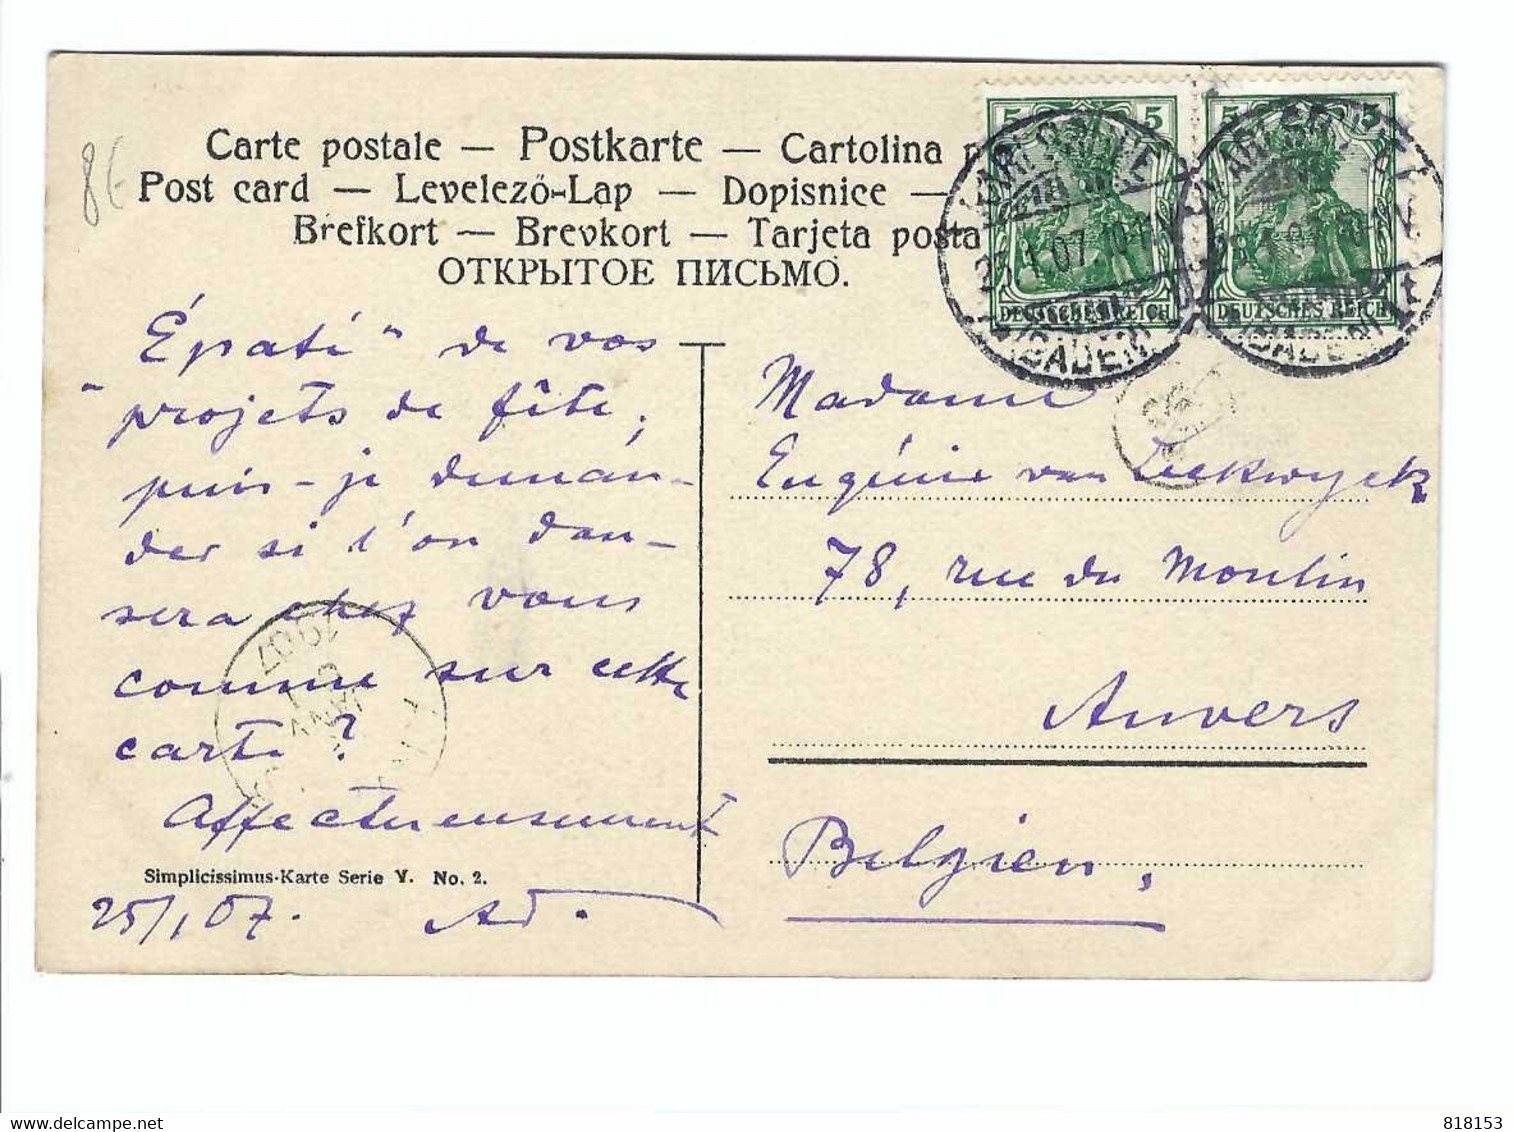 8€
Carte postale — Postkarte — Cartolina p
Post card — Levelező-Lap — Dopisnice —
Brefkort — Brevkort — Tarjeta posta
ОТКРЫТОЕ ПИСЬМО.
5 5 5 5
DEUTSCHES REICH DEUTSCHES REICH
KARLSRUHE
25.1.07.10-11V
(BADEN)
KARLSRUHE
(BADEN)
Épaté" de vos
"projets de fête,
puis-je deman-
der si l'on dan-
sera chez vous
comme sur cette
carte ?
Affectueusement
Simplicissimus-Karte Serie V. No. 2.
25/1 07. AD.
1907
JANV
Madame
Eugénie van
78, rue du Moulin
Anvers
Belgien,
818153